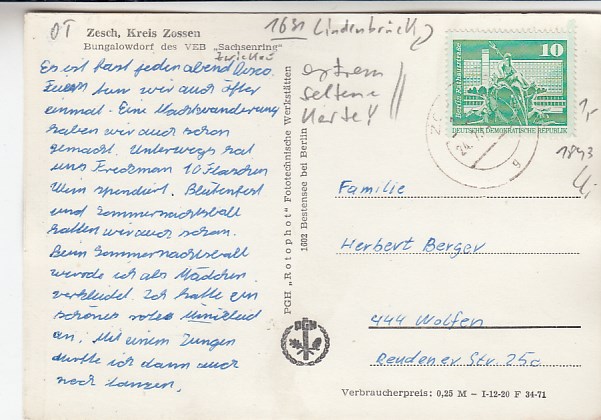 OT
1631 Lindenbrück
Zesch, Kreis Zossen
Bungalowdorf des VEB „Sachsenring"
Zwickau
Es ist fast jeden abend Disco.
tun wir auch öfter
einmal. Eine Nachtwanderung
haben wir auch schon
gemacht. Unterwegs hat
uns Fredman 10 Flaschen
Wein spendiert. Blütenfest
und Sommernachtsball
hatten wir auch schon.
Beim Sommernachtsball
wurde ich als Mädchen
verkleidet. Ich hatte ein
schönes rotes Minikleid
an. Mit einem Jungen
durfte ich dann auch
noch tanzen.
extrem
seltene
Karte!
PGH „Rotophot" Fototechnische Werkstätten
1602 Bestensee bei Berlin
PGH
10
Berlin, Rathausstraße
DEUTSCHE DEMOKRATISCHE REPUBLIK
ZO
24.
g
1,-
1843
4,-
Familie
Herbert Berger
444 Wolfen
Reudener Str. 25a
Verbraucherpreis: 0,25 M – I-12-20 F 34-71